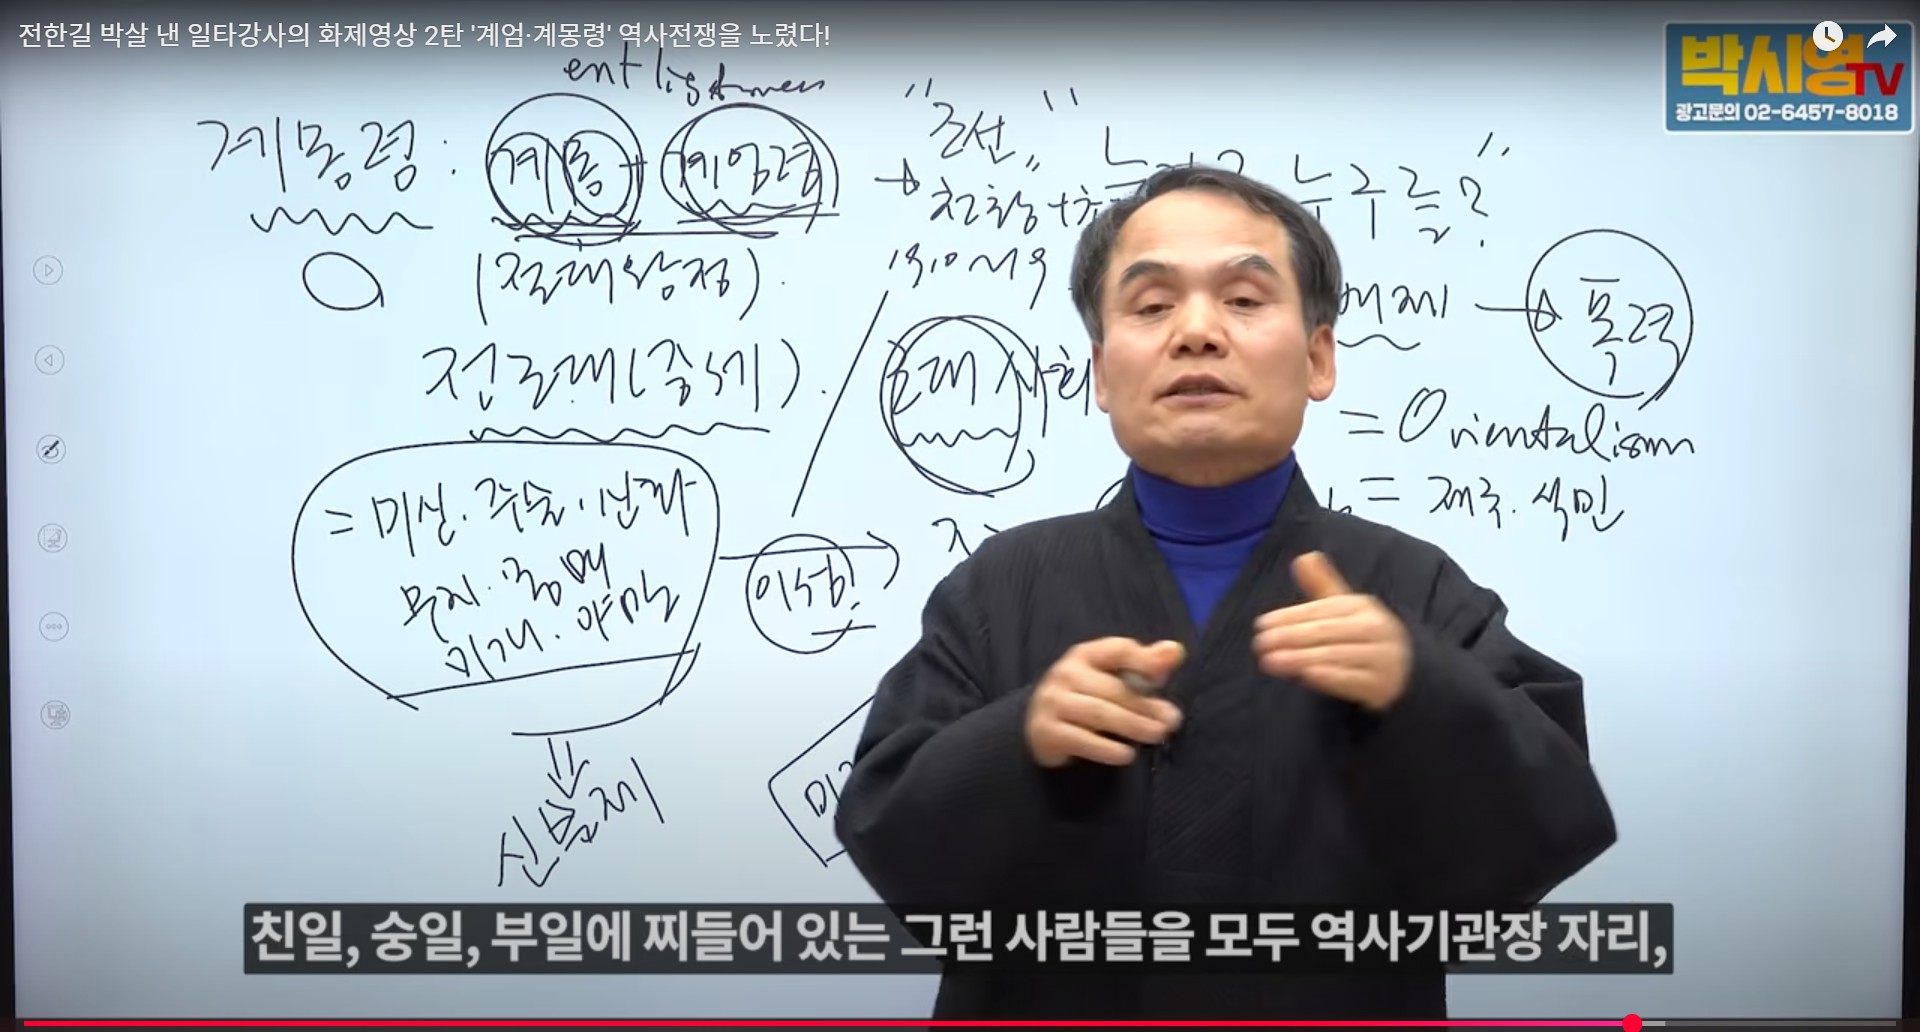 전한길 박살 낸 일타강사의 화제영상 2탄 '계엄·계몽령' 역사전쟁을 노렸다!
박시영TV
광고문의 02-6457-8018
계몽령 : 계몽 + 계엄령
"조선"
누구를?"
(절대왕정).
전근대(중세).
근대사회
폭력
= Orientalism
= 제국. 식민
= 미신. 주술.
무지. 몽매
미개. 야만
이성!
신분제
친일, 숭일, 부일에 찌들어 있는 그런 사람들을 모두 역사기관장 자리,